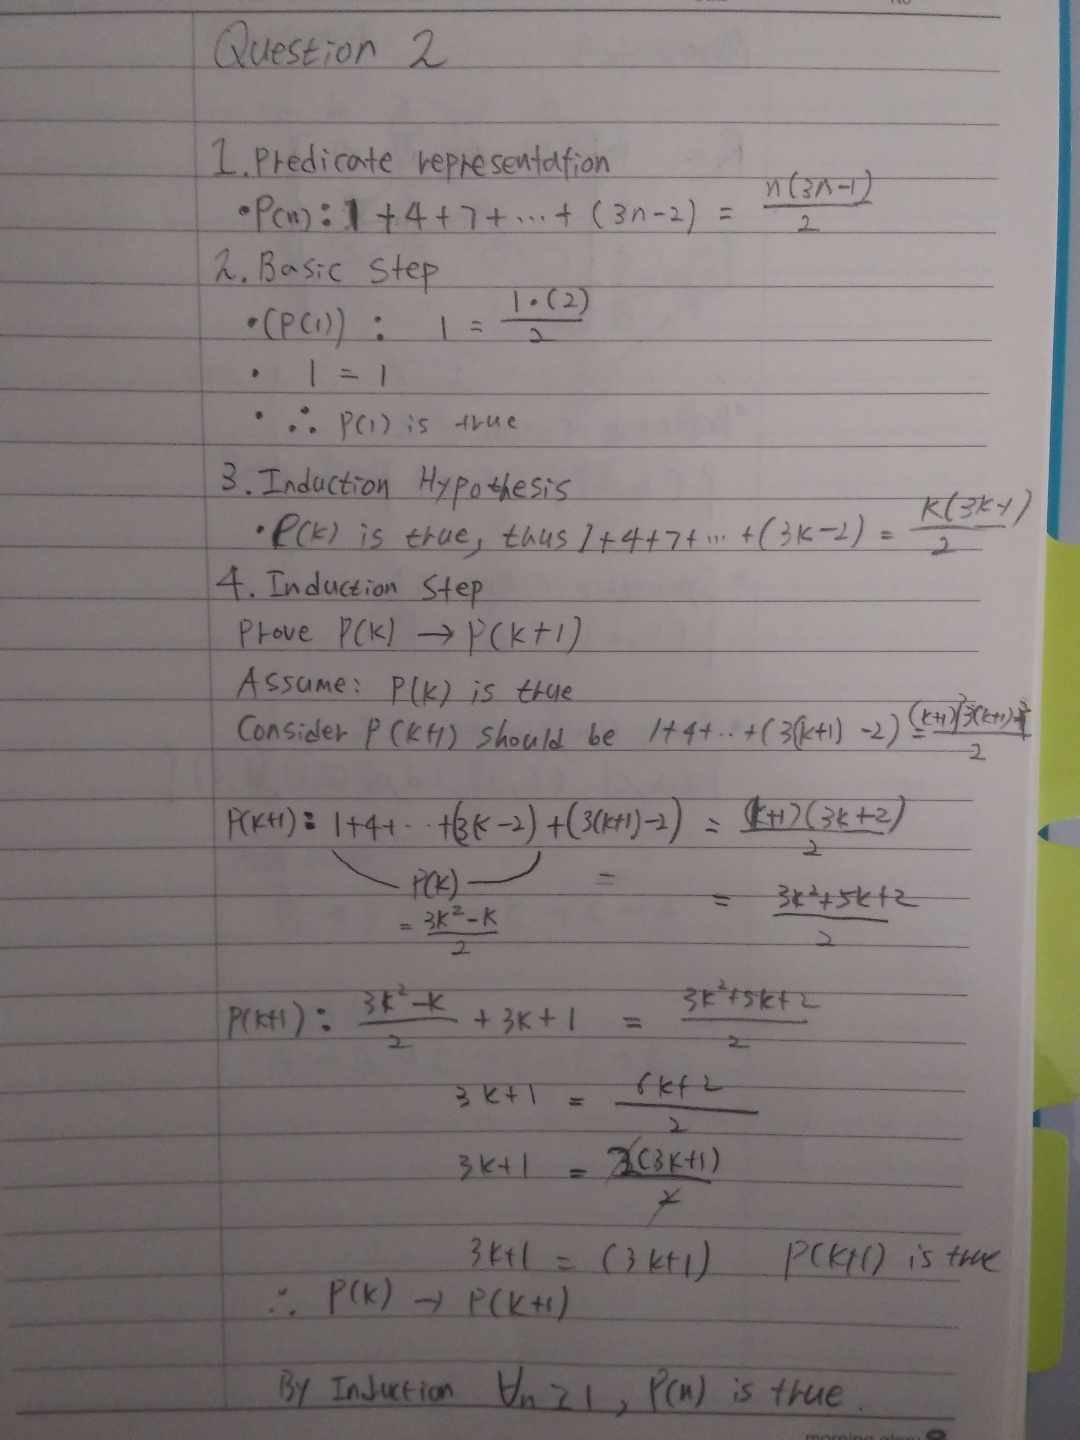 Question 2
1. Predicate representation
• P(n): 1 + 4 + 7 + ... + (3n-2) = n(3n-1)/2
2. Basic Step
• (P(1)) : 1 = 1·(2)/2
• 1 = 1
• ∴ P(1) is true
3. Induction Hypothesis
• P(k) is true, thus 1+4+7+ ... +(3k-2) = k(3k-1)/2
4. Induction Step
Prove P(k) → P(k+1)
Assume: P(k) is true
Consider P(k+1) should be 1+4+..+(3(k+1) -2) = (k+1)(3(k+1)-1)/2
P(k+1): 1+4+...+(3k-2)+(3(k+1)-2) = (k+1)(3k+2)/2
P(k) = = 3k²+5k+2/2
= 3k²-k/2
P(k+1): 3k²-k/2 + 3k+1 = 3k²+5k+2/2
3k+1 = 6k+2/2
3k+1 = 2(3k+1)/2
3k+1 = (3k+1) P(k+1) is true
∴ P(k) → P(k+1)
By Induction ∀n ≥ 1, P(n) is true.